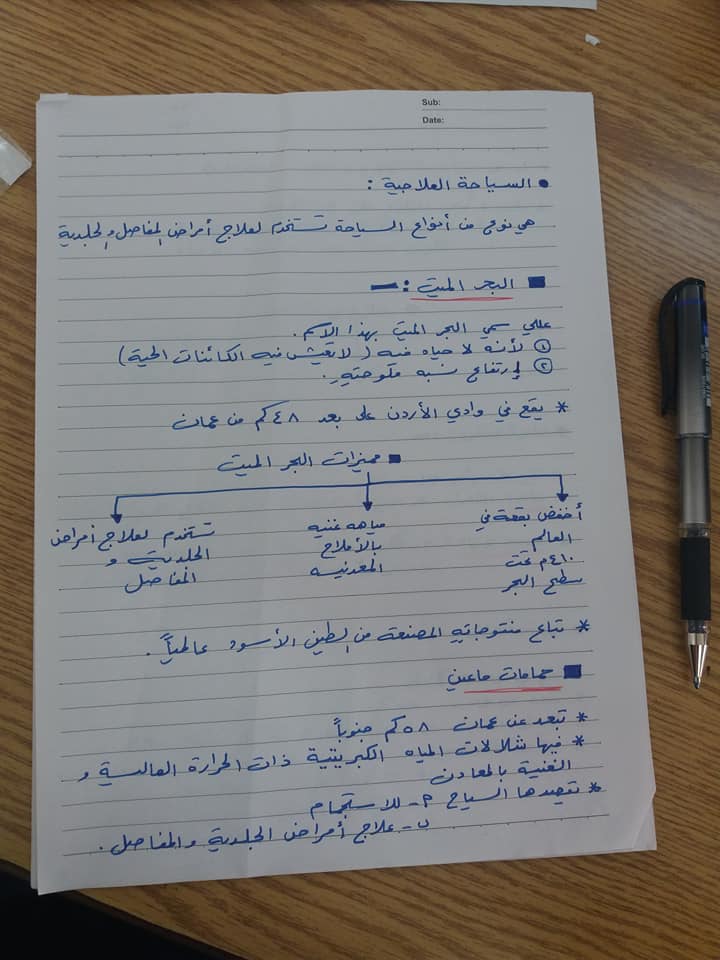 Sub:
Date:
• السياحة العلاجية :
هي نوع من أنواع السياحة تستخدم لعلاج أمراض المفاصل والجلدية
■ البحر الميت :-
عللي سمي البحر الميت بهذا الاسم .
① لأنه لا حياه فيه ( لا تعيش فيه الكائنات الحية )
② إرتفاع نسبه ملوحته .
* يقع في وادي الأردن على بعد ٤٨ كم من عمان
■ مميزات البحر الميت
أخفض بقعة في
العالم
٤١٠ م تحت
سطح البحر
مياهه غنيه
بالأملاح
المعدنيه
تستخدم لعلاج أمراض
الجلدية و
المفاصل
* تباع منتوجاته المصنعة من الطين الأسود عالمياً .
■ حمامات ماعين
* تبعد عن عمان ٥٨ كم جنوباً
* فيها شلالات المياه الكبريتية ذات الحرارة العالية و
الغنية بالمعادن
* تقصدها السياح ٢- للاستجمام
ب- علاج أمراض الجلدية والمفاصل .